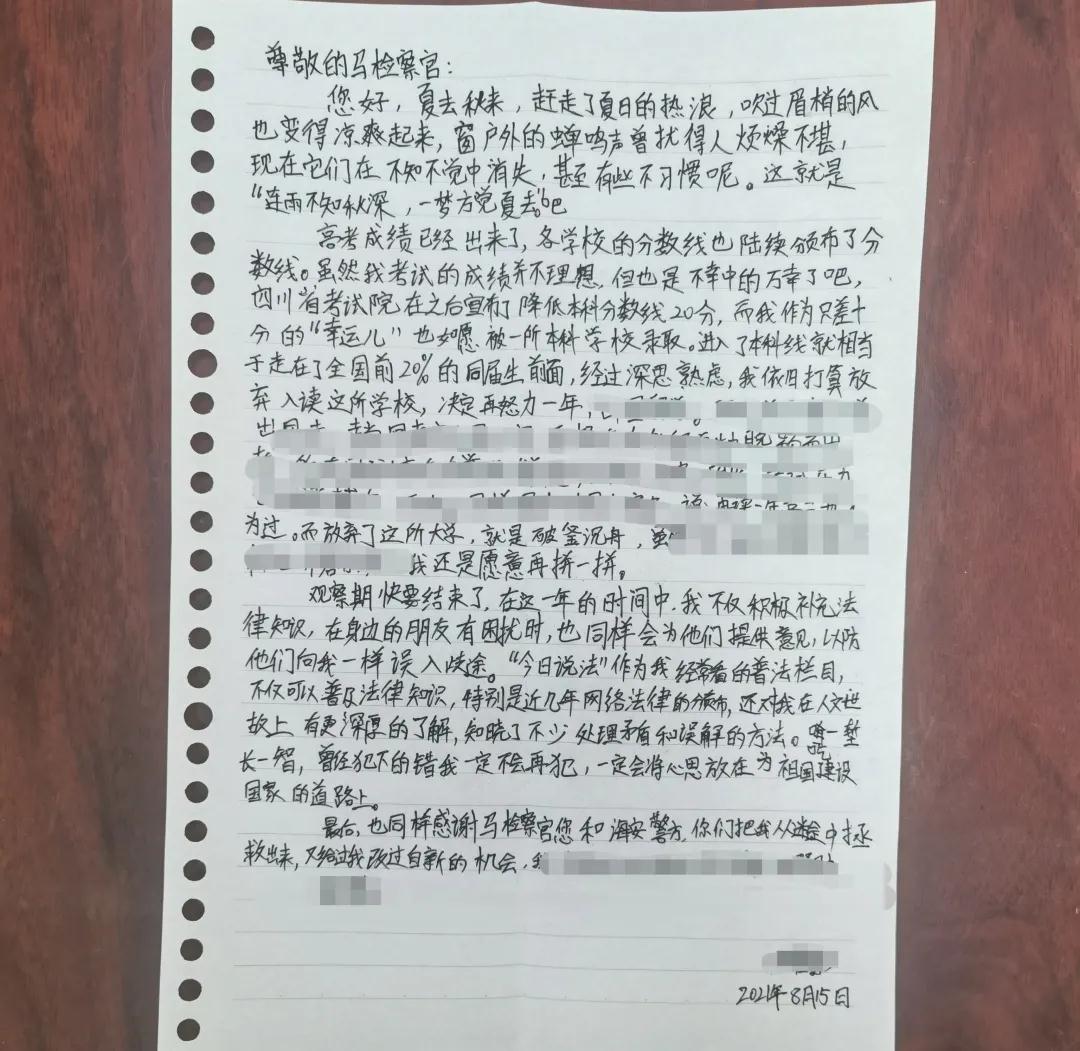 尊敬的马检察官:
您好,夏去秋来,赶走了夏日的热浪,吹过眉梢的风
也变得凉爽起来,窗户外的蝉鸣声曾扰得人烦燥不堪,
现在它们在不知不觉中消失,甚至有些不习惯呢。这就是
“连雨不知秋深,一梦方觉夏去。”吧
高考成绩已经出来了,各学校的分数线也陆续颁布了分
数线。虽然我考试的成绩并不理想,但也是不幸中的万幸了吧,
四川省考试院在之后宣布了降低本科分数线20分,而我作为只差十
分的“幸运儿”也如愿被一所本科学校录取。进入了本科线就相当
于走在了全国前20%的同届生前面,经过深思熟虑,我依旧打算放
弃入读这所学校,决定再努力一年,
为过。而放弃了这所大学,就是破釜沉舟,
我还是愿意再拼一拼。
观察期快要结束了,在这一年的时间中,我不仅积极补充法
律知识,在身边的朋友有困扰时,也同样会为他们提供意见,以防
他们向我一样误入歧途。“今日说法”作为我经常看的普法栏目,
不仅可以普及法律知识,特别是近几年网络法律的颁布,还对我在人文世
故上有更深厚的了解,知晓了不少处理矛盾和误解的方法。吃一堑
长一智,曾经犯下的错我一定不会再犯,一定会将心思放在为祖国建设
国家的道路上。
最后,也同样感谢马检察官您和海安警方,你们把我从迷途中拯
救出来,又给过我改过自新的机会,
2021年8月15日